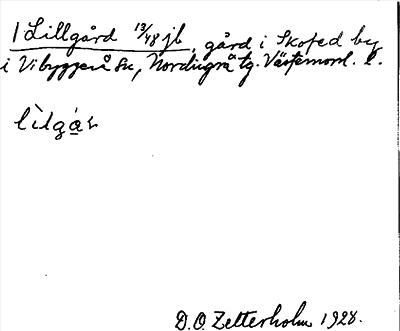 1 Lillgård 13/48 jb, gård i Skoved by
i Vibyggerå Sn, Nordingrå tg. Västernorrl. l.
lìlgáɽ
D.O. Zetterholm 1928.